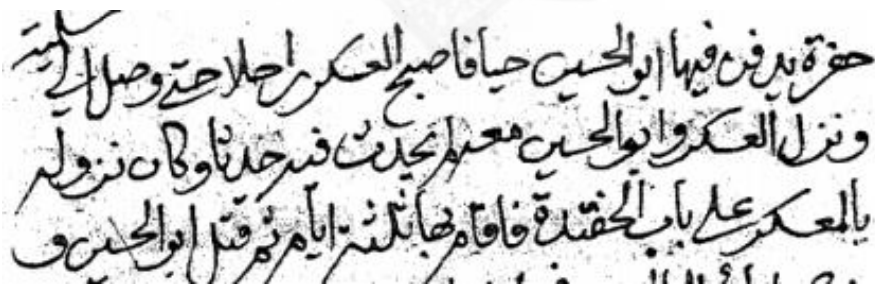 حفرة يدفن فيها ابو الحسين حيا فاصبح العسكر راحلا حتى وصل الى سلمية
ونزل العسكر وابو الحسين معه لم يحدث فيه حدثا وكان نزوله
بالعسكر على باب الخندق فاقام بها ثلثة ايام ثم قتل ابو الحسين و